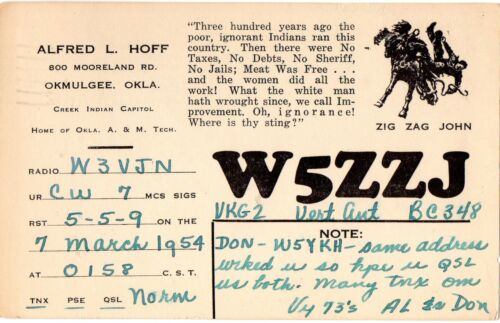 ALFRED L. HOFF
800 MOORELAND RD.
OKMULGEE, OKLA.
CREEK INDIAN CAPITOL
HOME OF OKLA. A. & M. TECH.
"Three hundred years ago the
poor, ignorant Indians ran this
country. Then there were No
Taxes, No Debts, No Sheriff,
No Jails; Meat Was Free . . .
and the women did all the
work! What the white man
hath wrought since, we call Im-
provement. Oh, ignorance!
Where is thy sting?"
ZIG ZAG JOHN
RADIO W3VJN
UR CW 7 MCS SIGS
RST 5-5-9 ON THE
7 March 1954
AT 0158 C.S.T.
TNX PSE QSL Norm
W5ZZJ
VKG2 Vert Ant BC348
NOTE:
DON - W5YKH - same address
wrked u so hpe u QSL
us both. Many tnx om
Vy 73's AL Don